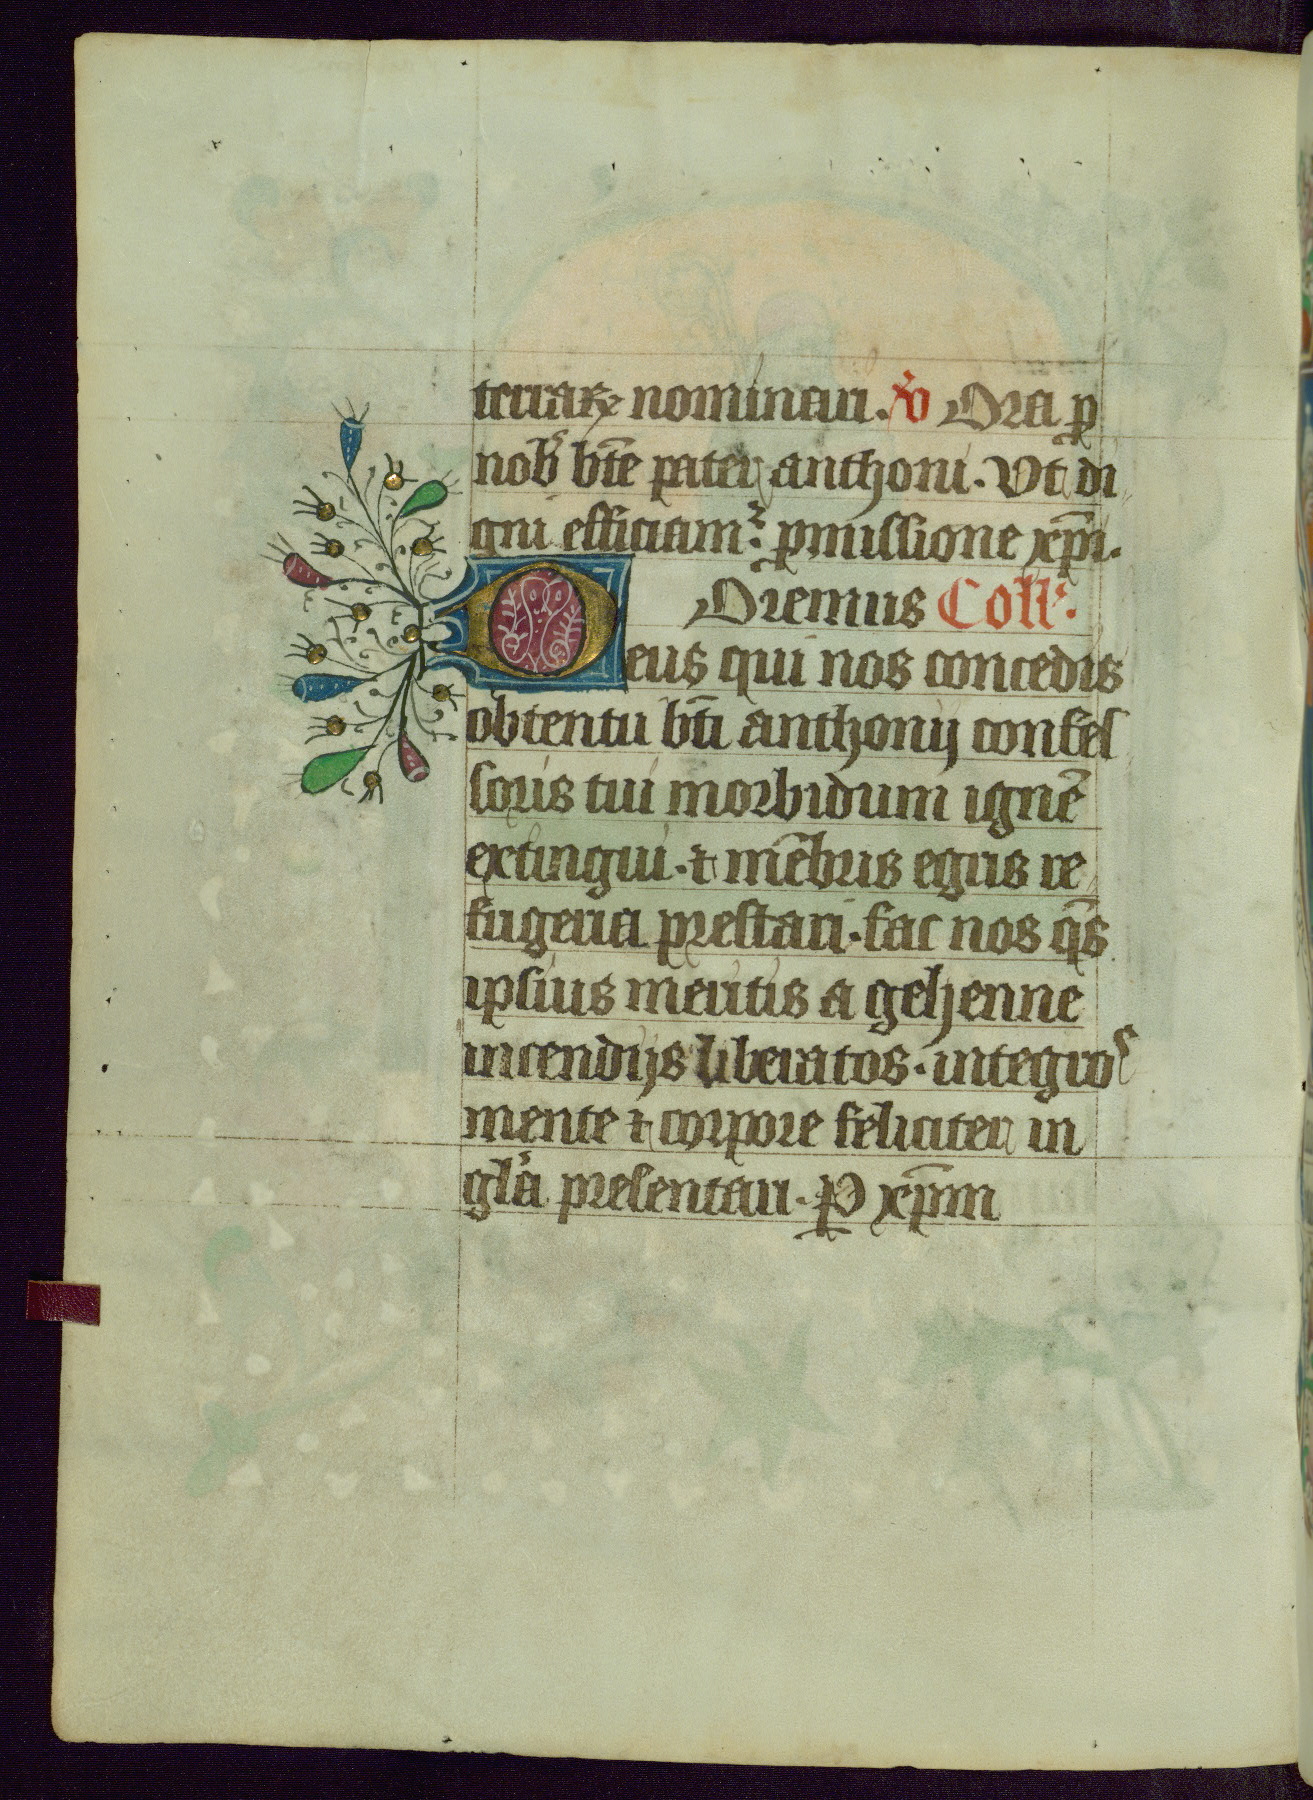 terraꝝ nominari. v̉ Ora p
nobˢ bt̄e pater anthoni. Vt di
gni efficiamᷣ pmissione xp̄i.
Oremus Collᵃ.
Deus qui nos concedis
obtentu bt̄i anthonij confes
soris tui morbidum ignē
extingui. ⁊ mēbris egris re
fugeria prestari. fac nos qs̄
ipsius meritis a gehenne
incendijs liberatos. integroˢ
mente ⁊ corpore feliciter in
gl̉a presentari. P xp̄m